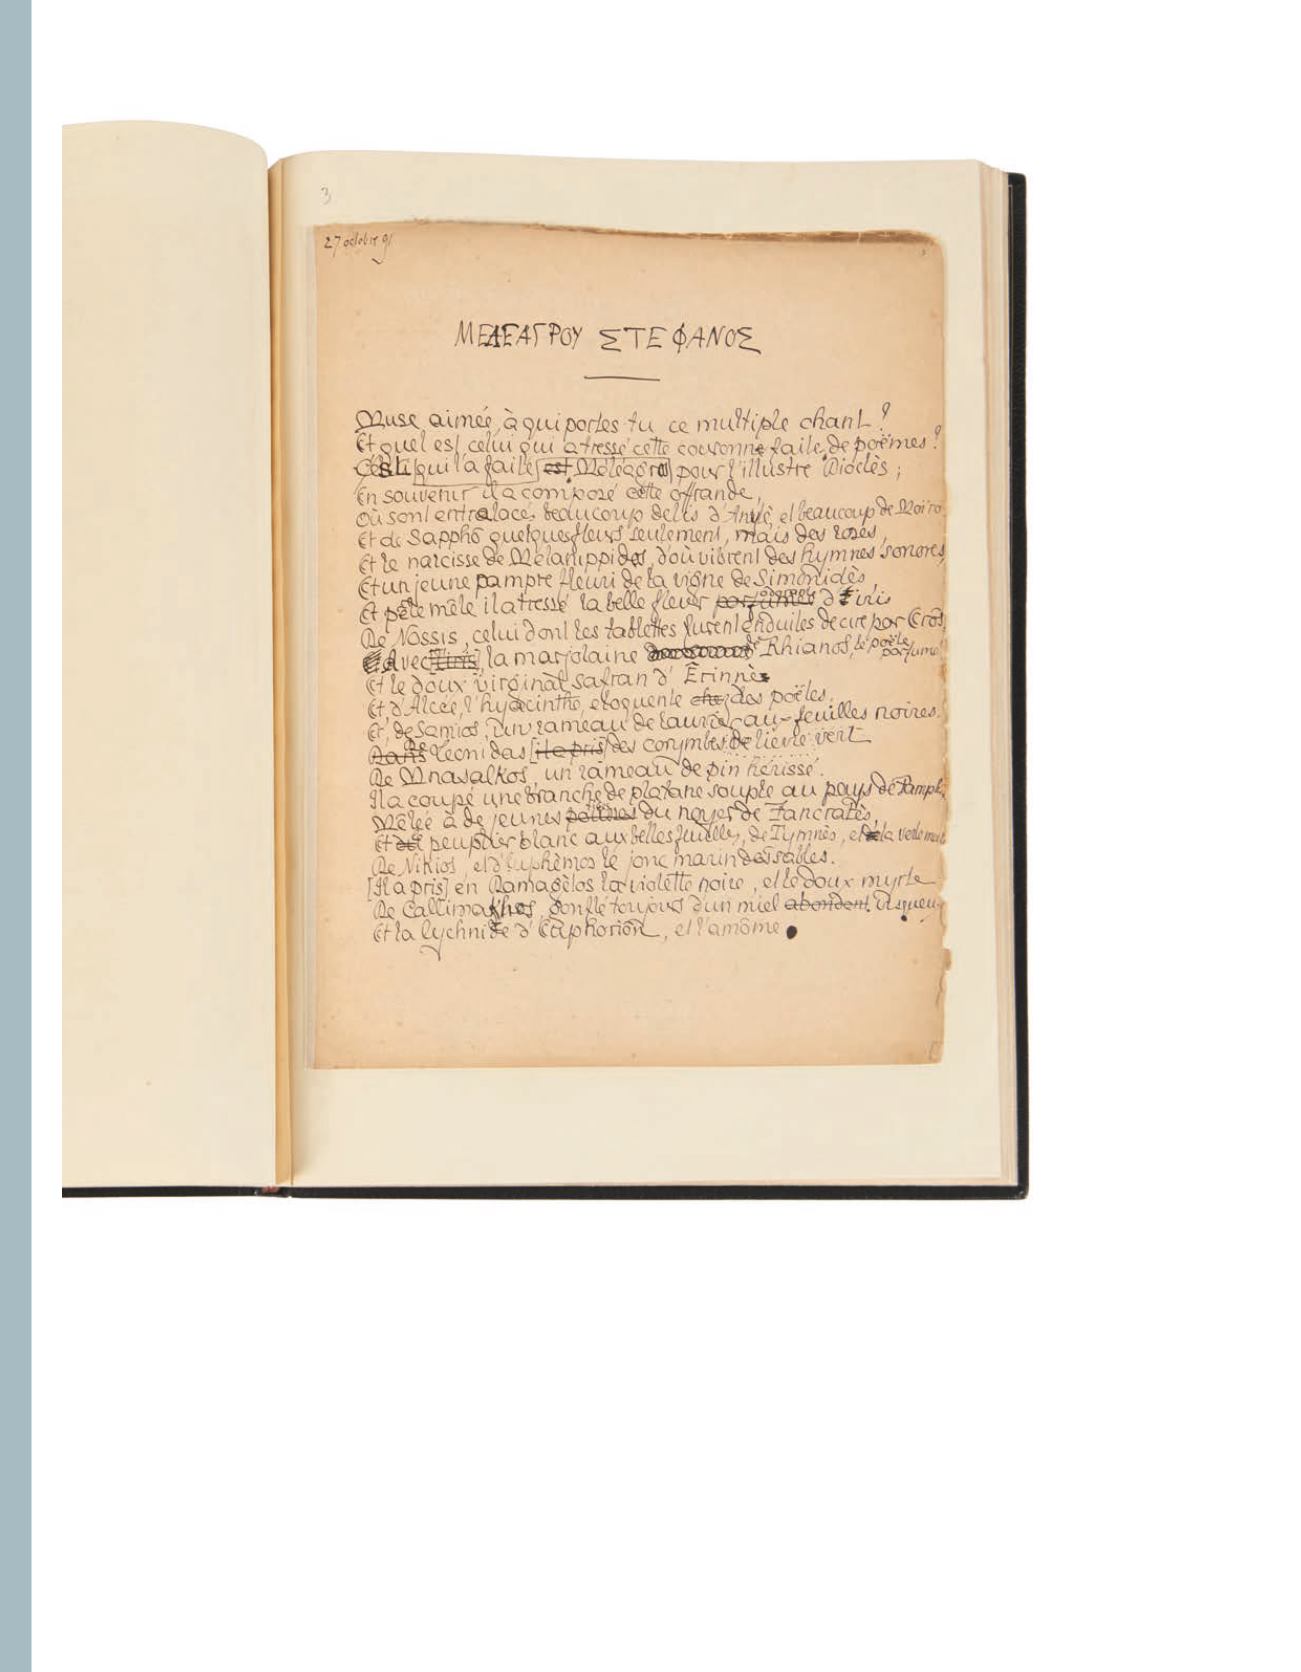 3
27 octobre 91
ΜΕΛΕΑΓΡΟΥ ΣΤΕΦΑΝΟΣ
Muse aimée, à qui portes-tu ce multiple chant ?
Et quel est celui qui a tressé cette couronne faite de poëmes ?
C'est qui l'a faite est Méléagros pour l'illustre Dioclès ;
En souvenir il a composé cette offrande,
Où sont entrelacés beaucoup de lis d'Anytê, et beaucoup de Moïro
Et de Sapphô quelques fleurs seulement, mais des roses,
Et le narcisse de Mélanippidès, d'où vibrent des hymnes sonores,
Et un jeune pampre fleuri de la vigne de Simônidès,
Et pêle mêle il a tressé la belle fleur parfumée d'iris
De Nossis, celui dont les tablettes furent enduites de cire par Erôs,
Avec l'iris la marjolaine de Rhianos, le poëte parfumé
Et le doux virginal safran d'Êrinnès
Et, d'Alcée, l'hyacinthe, éloquente chez des poëtes,
Et, de Samios, un rameau de laurier aux feuilles noires.
Dans De Léonidas [il a pris] des corymbes de lierre vert
De Mnasalkos, un rameau de pin hérissé.
Il a coupé une branche de platane souple au pays de Pamph
Mêlée à de jeunes du noyer de Pancratès,
Et peuplier blanc aux belles feuilles, de Tymnès, et la verte
De Nikios, et d'Euphêmos le jonc marin des sables.
[Il a pris] en Damagètos la violette noire, et le doux myrte
De Callimakhos, gonflé toujours d'un miel abondant visqueux
Et la lychnide d'Euphoriôn, et l'amôme